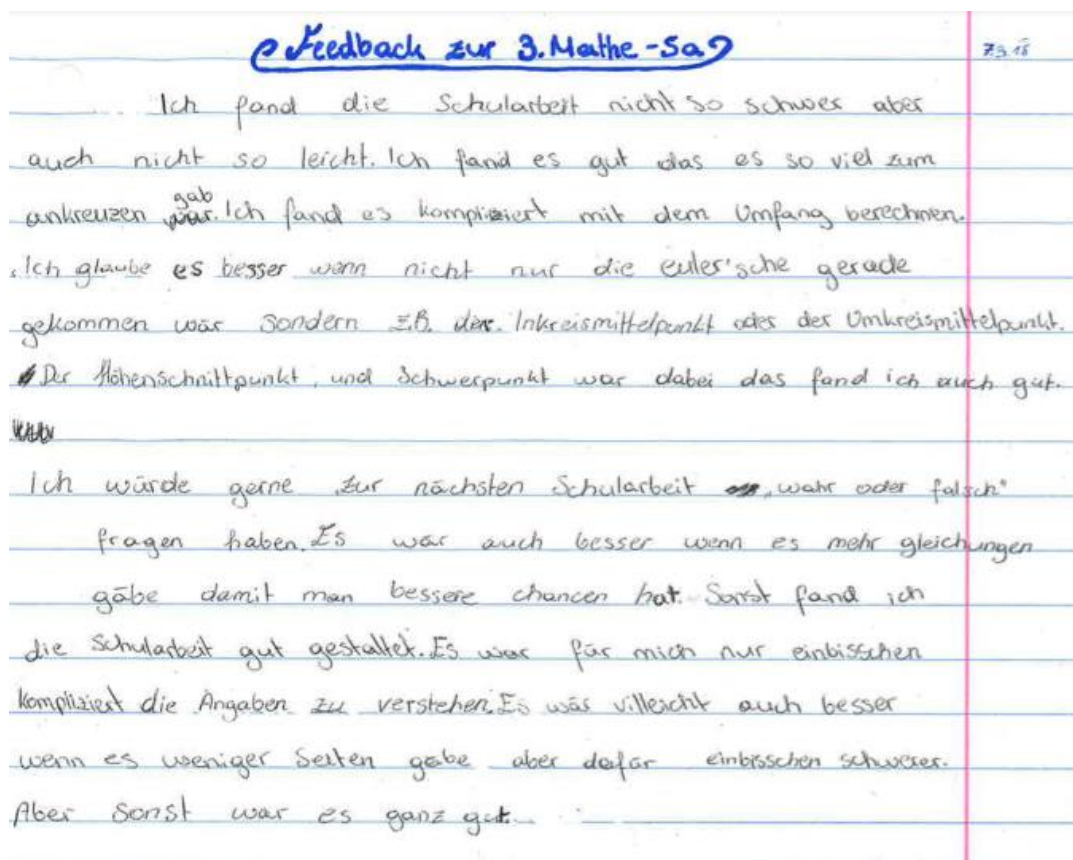 Feedback zur 3. Mathe-Sa 7.3.18
Ich fand die Schularbeit nicht so schwer aber
auch nicht so leicht. Ich fand es gut das es so viel zum
ankreuzen gab. Ich fand es kompliziert mit dem Umfang berechnen.
Ich glaube es besser wenn nicht nur die euler'sche gerade
gekommen wär sondern z.B. der Inkreismittelpunkt oder der Umkreismittelpunkt.
Der Höhenschnittpunkt, und Schwerpunkt war dabei das fand ich auch gut.
Ich würde gerne zur nächsten Schularbeit „wahr oder falsch"
fragen haben. Es wär auch besser wenn es mehr gleichungen
gäbe damit man bessere chancen hat. Sonst fand ich
die Schularbeit gut gestaltet. Es war für mich nur einbisschen
kompliziert die Angaben zu verstehen. Es wär villeicht auch besser
wenn es weniger Seiten gäbe aber dafür einbisschen schwerer.
Aber Sonst war es ganz gut.